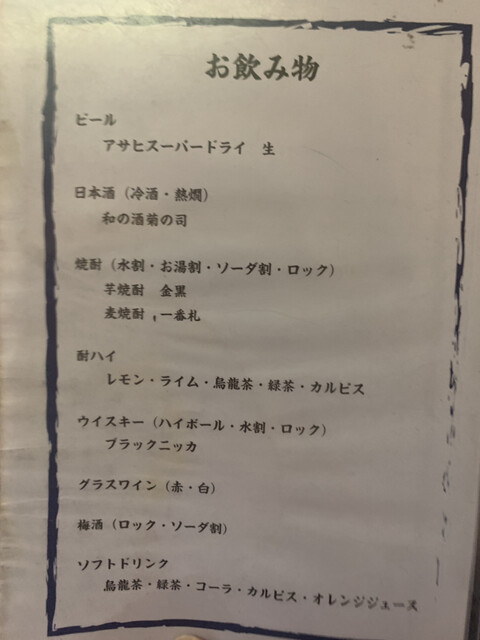 お飲み物
ビール
アサヒスーパードライ　生
日本酒（冷酒・熱燗）
和の酒菊の司
焼酎（水割・お湯割・ソーダ割・ロック）
芋焼酎　金黒
麦焼酎　一番札
酎ハイ
レモン・ライム・烏龍茶・緑茶・カルピス
ウイスキー（ハイボール・水割・ロック）
ブラックニッカ
グラスワイン（赤・白）
梅酒（ロック・ソーダ割）
ソフトドリンク
烏龍茶・緑茶・コーラ・カルピス・オレンジジュース